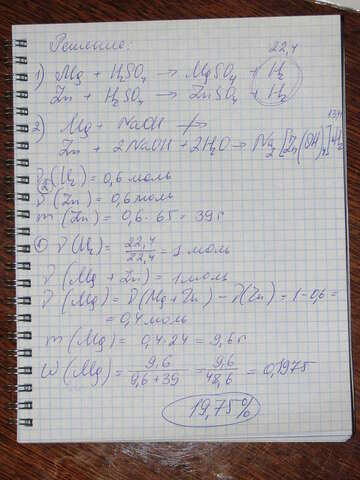 Решение:
22,4
1) Mg + H₂SO₄ → MgSO₄ + H₂
Zn + H₂SO₄ → ZnSO₄ + H₂
2) Mg + NaOH ↛
Zn + 2NaOH + 2H₂O → Na₂[Zn(OH)₄] + H₂
ν₂(H₂) = 0,6 моль
ν(Zn) = 0,6 моль
m(Zn) = 0,6 · 65 = 39 г
① ν(H₂) = 22,4/22,4 = 1 моль
ν(Mg + Zn) = 1 моль
ν(Mg) = ν(Mg + Zn) - ν(Zn) = 1 - 0,6 =
= 0,4 моль
m(Mg) = 0,4 · 24 = 9,6 г
W(Mg) = 9,6/9,6 + 39 = 9,6/48,6 = 0,1975
19,75%